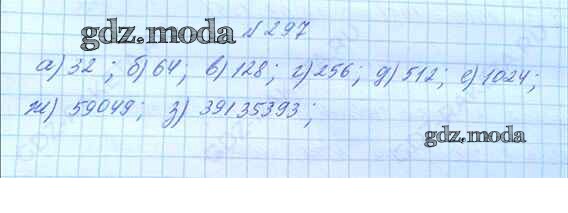 gdz.moda № 297
а) 32 ; б) 64; в) 128; г) 256; д) 512; е) 1024;
ж) 59049; з) 39135393;
gdz.moda